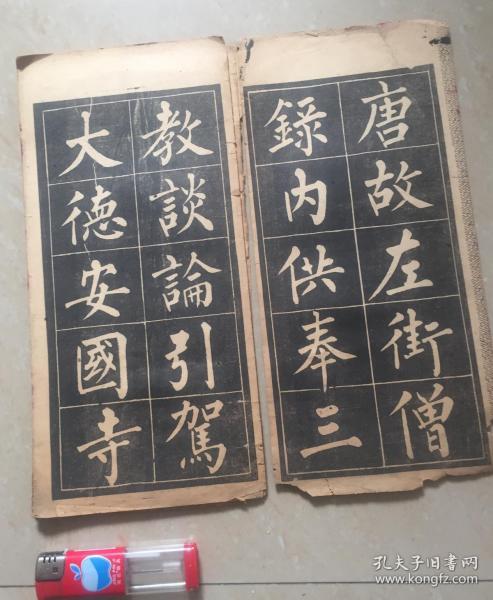 唐故左街僧
録内供奉三
教談論引駕
大徳安國寺
孔夫子旧书网
www.kongfz.com